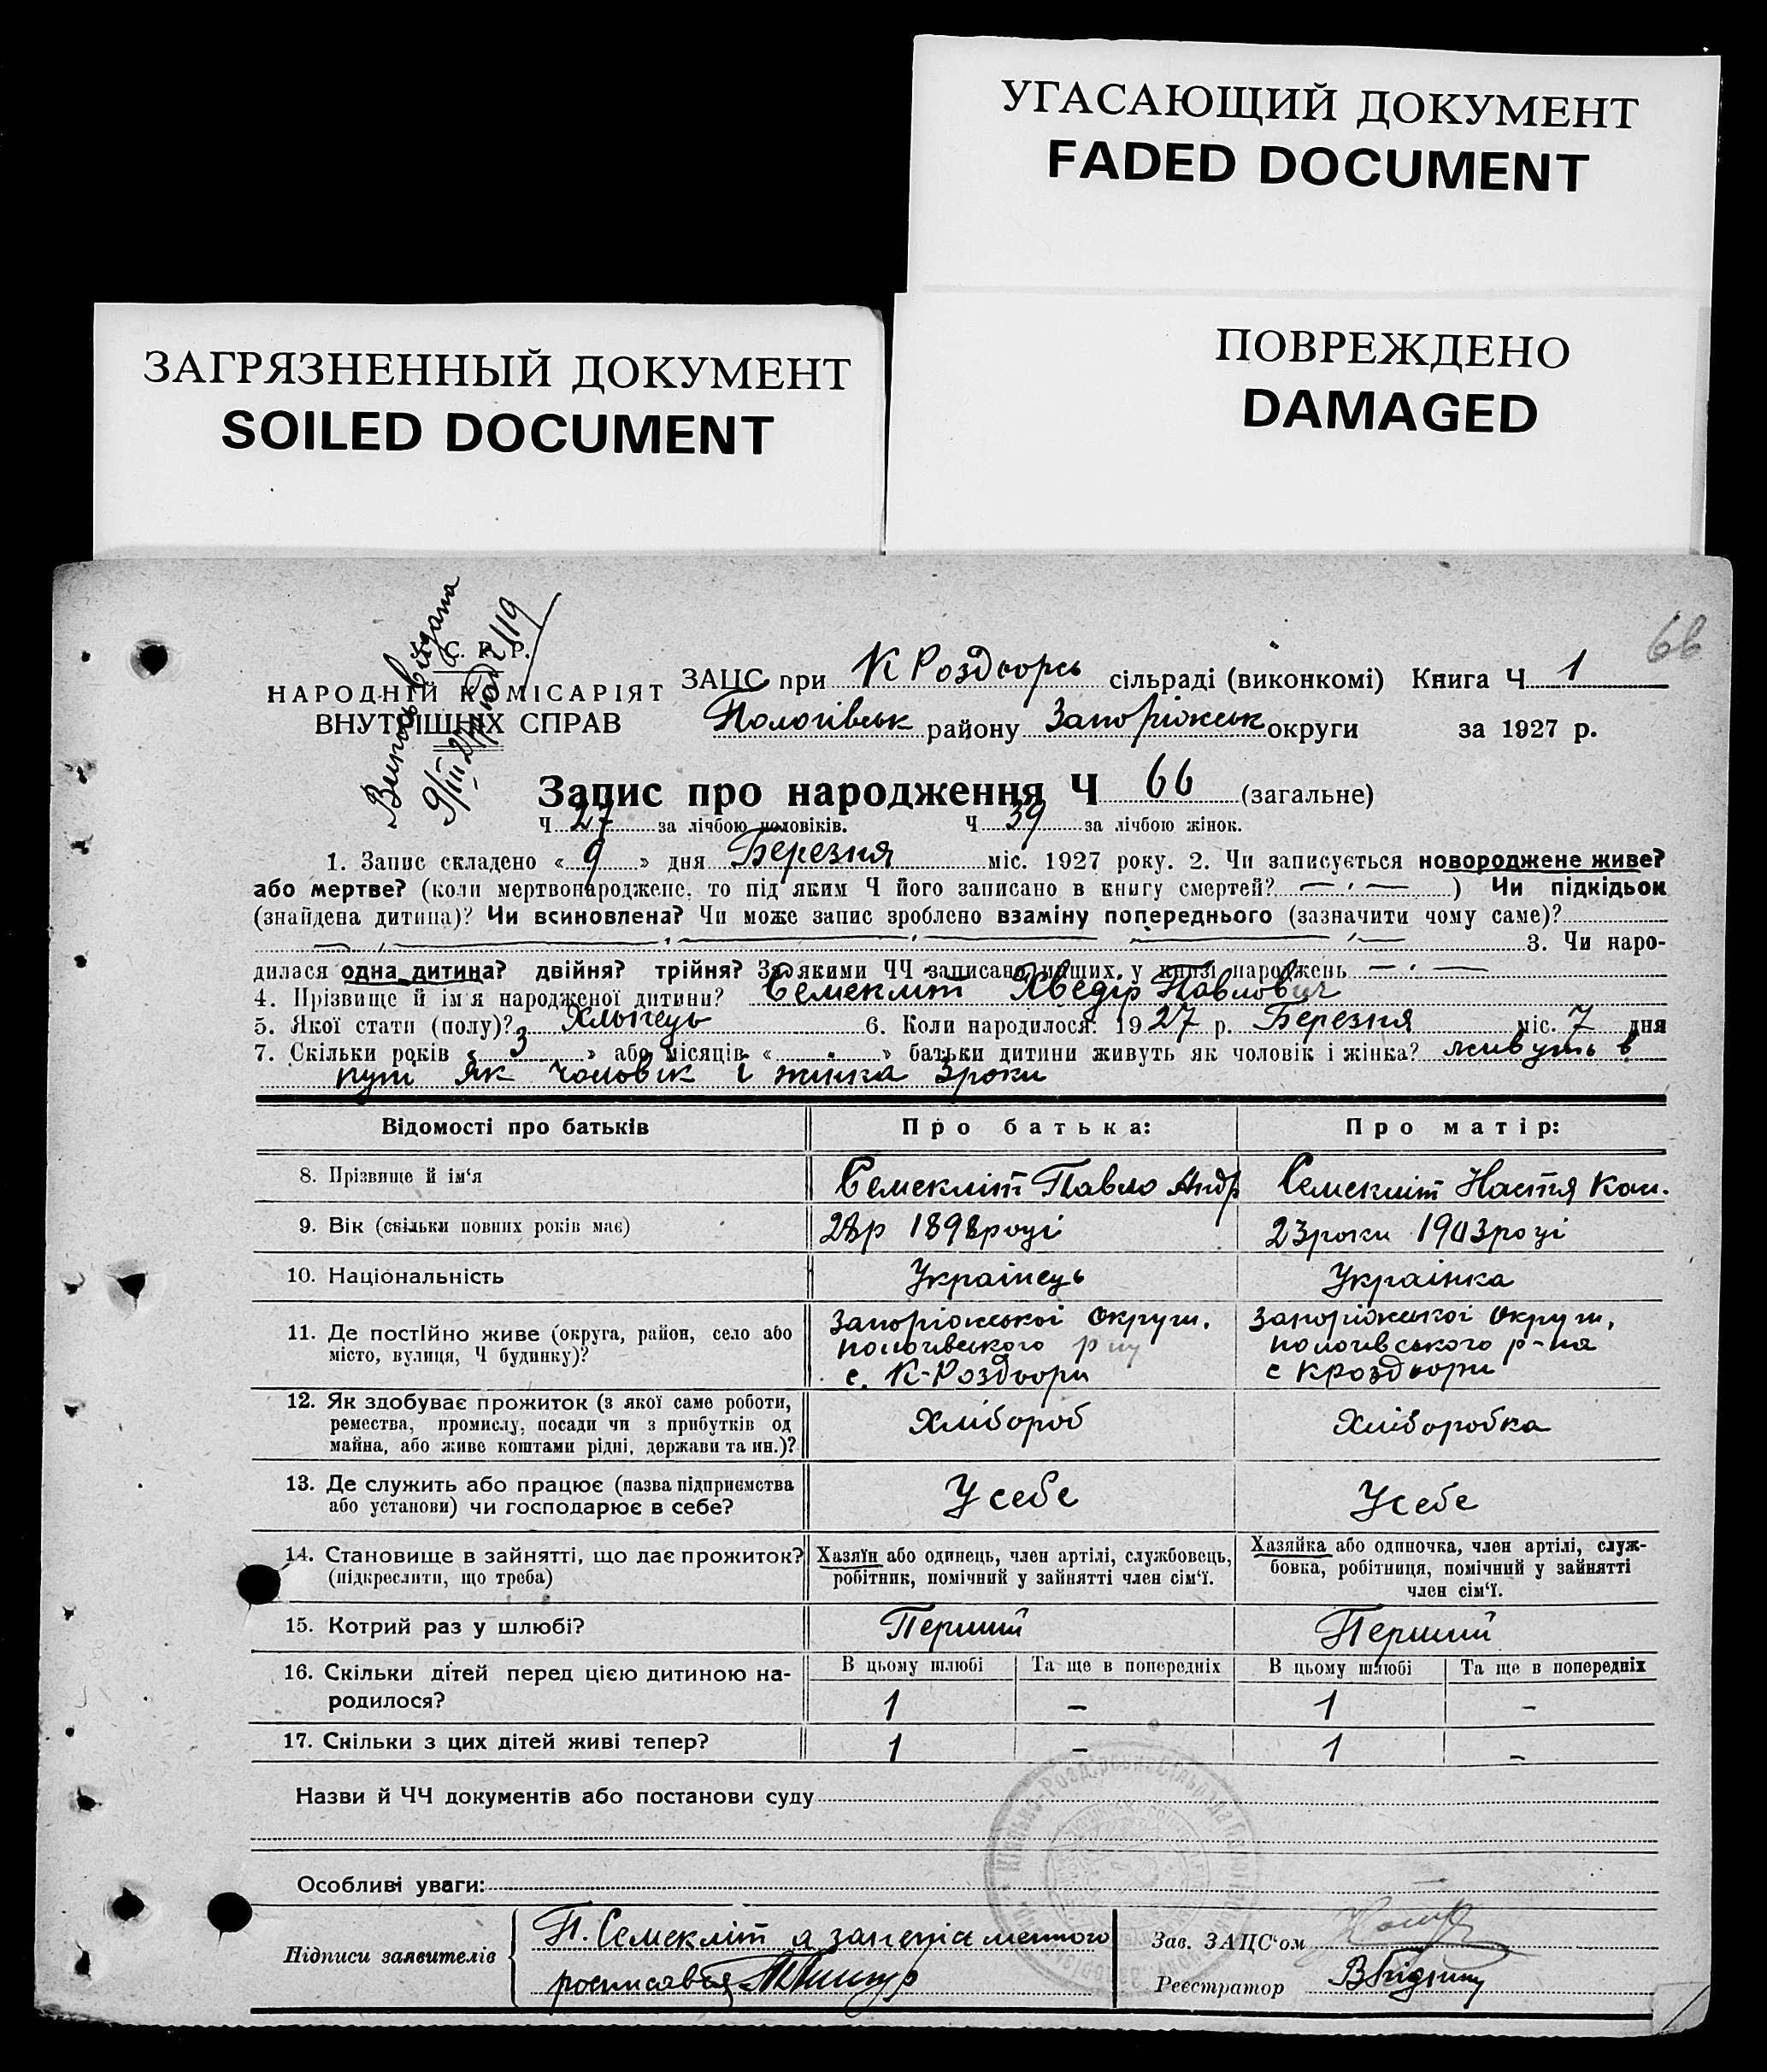 УГАСАЮЩИЙ ДОКУМЕНТ
FADED DOCUMENT
ЗАГРЯЗНЕННЫЙ ДОКУМЕНТ
SOILED DOCUMENT
ПОВРЕЖДЕНО
DAMAGED
66
Випись видана
9/III 27
С. Р. Р.
НАРОДНІЙ КОМІСАРІЯТ
ВНУТРІШНІХ СПРАВ
ЗАЦС при К Роздорсь сільраді (виконкомі) Книга Ч 1
Пологівськ району Запоріжськ округи за 1927 р.
Запис про народження Ч 66 (загальне)
Ч 27 за лічбою чоловіків. Ч 39 за лічбою жінок.
1. Запис складено «9» дня Березня міс. 1927 року. 2. Чи записується новороджене живе?
або мертве? (коли мертвонароджене, то під яким Ч його записано в книгу смертей? — . —) Чи підкідьок
(знайдена дитина)? Чи всиновлена? Чи може запис зроблено взаміну попереднього (зазначити чому саме)?
3. Чи наро-
дилася одна дитина? двійня? трійня? За якими ЧЧ записано інших у книзі народжень — . —
4. Прізвище й ім'я народженої дитини? Семекліт Хведір Павлович
5. Якої стати (полу)? Хлопець 6. Коли народилося: 1927 р. Березня міс. 7 дня
7. Скільки років «3» або місяців « . » батьки дитини живуть як чоловік і жінка? живуть в
купі як чоловік і жинка 3 роки
Відомості про батьків Про батька: Про матір:
8. Прізвище й ім'я Семекліт Павло Андр Семекліт Настя
9. Вік (скільки повних років має) 28р 1898році 23роки 1903році
10. Національність Українець Українка
11. Де постійно живе (округа, район, село або місто, вулиця, Ч будинку)?
Запоріжської Округи, Запоріжської Округи,
пологівського р пологівського р-на
с. К-Роздори с К роздори
12. Як здобуває прожиток (з якої саме роботи,
ремества, промислу, посади чи з прибутків од
майна, або живе коштами рідні, держави та ин.)?
Хлібороб Хліборобка
13. Де служить або працює (назва підприємства
або установи) чи господарює в себе?
У себе У себе
14. Становище в зайнятті, що дає прожиток?
(підкреслити, що треба)
Хазяїн або одинець, член артілі, службовець,
робітник, помічний у зайнятті член сім'ї.
Хазяйка або одиночка, член артілі, служ-
бовка, робітниця, помічний у зайнятті
член сім'ї.
15. Котрий раз у шлюбі? Перший Перший
16. Скільки дітей перед цією дитиною на-
родилося?
В цьому шлюбі Та ще в попередніх В цьому шлюбі Та ще в попередніх
1 – 1 –
17. Скільки з цих дітей живі тепер? 1 – 1 –
Назви й ЧЧ документів або постанови суду
Особливі уваги:
Підписи заявителів
П. Семекліт а за неписьменного
росписався
Зав. ЗАЦС'ом
Реєстратор